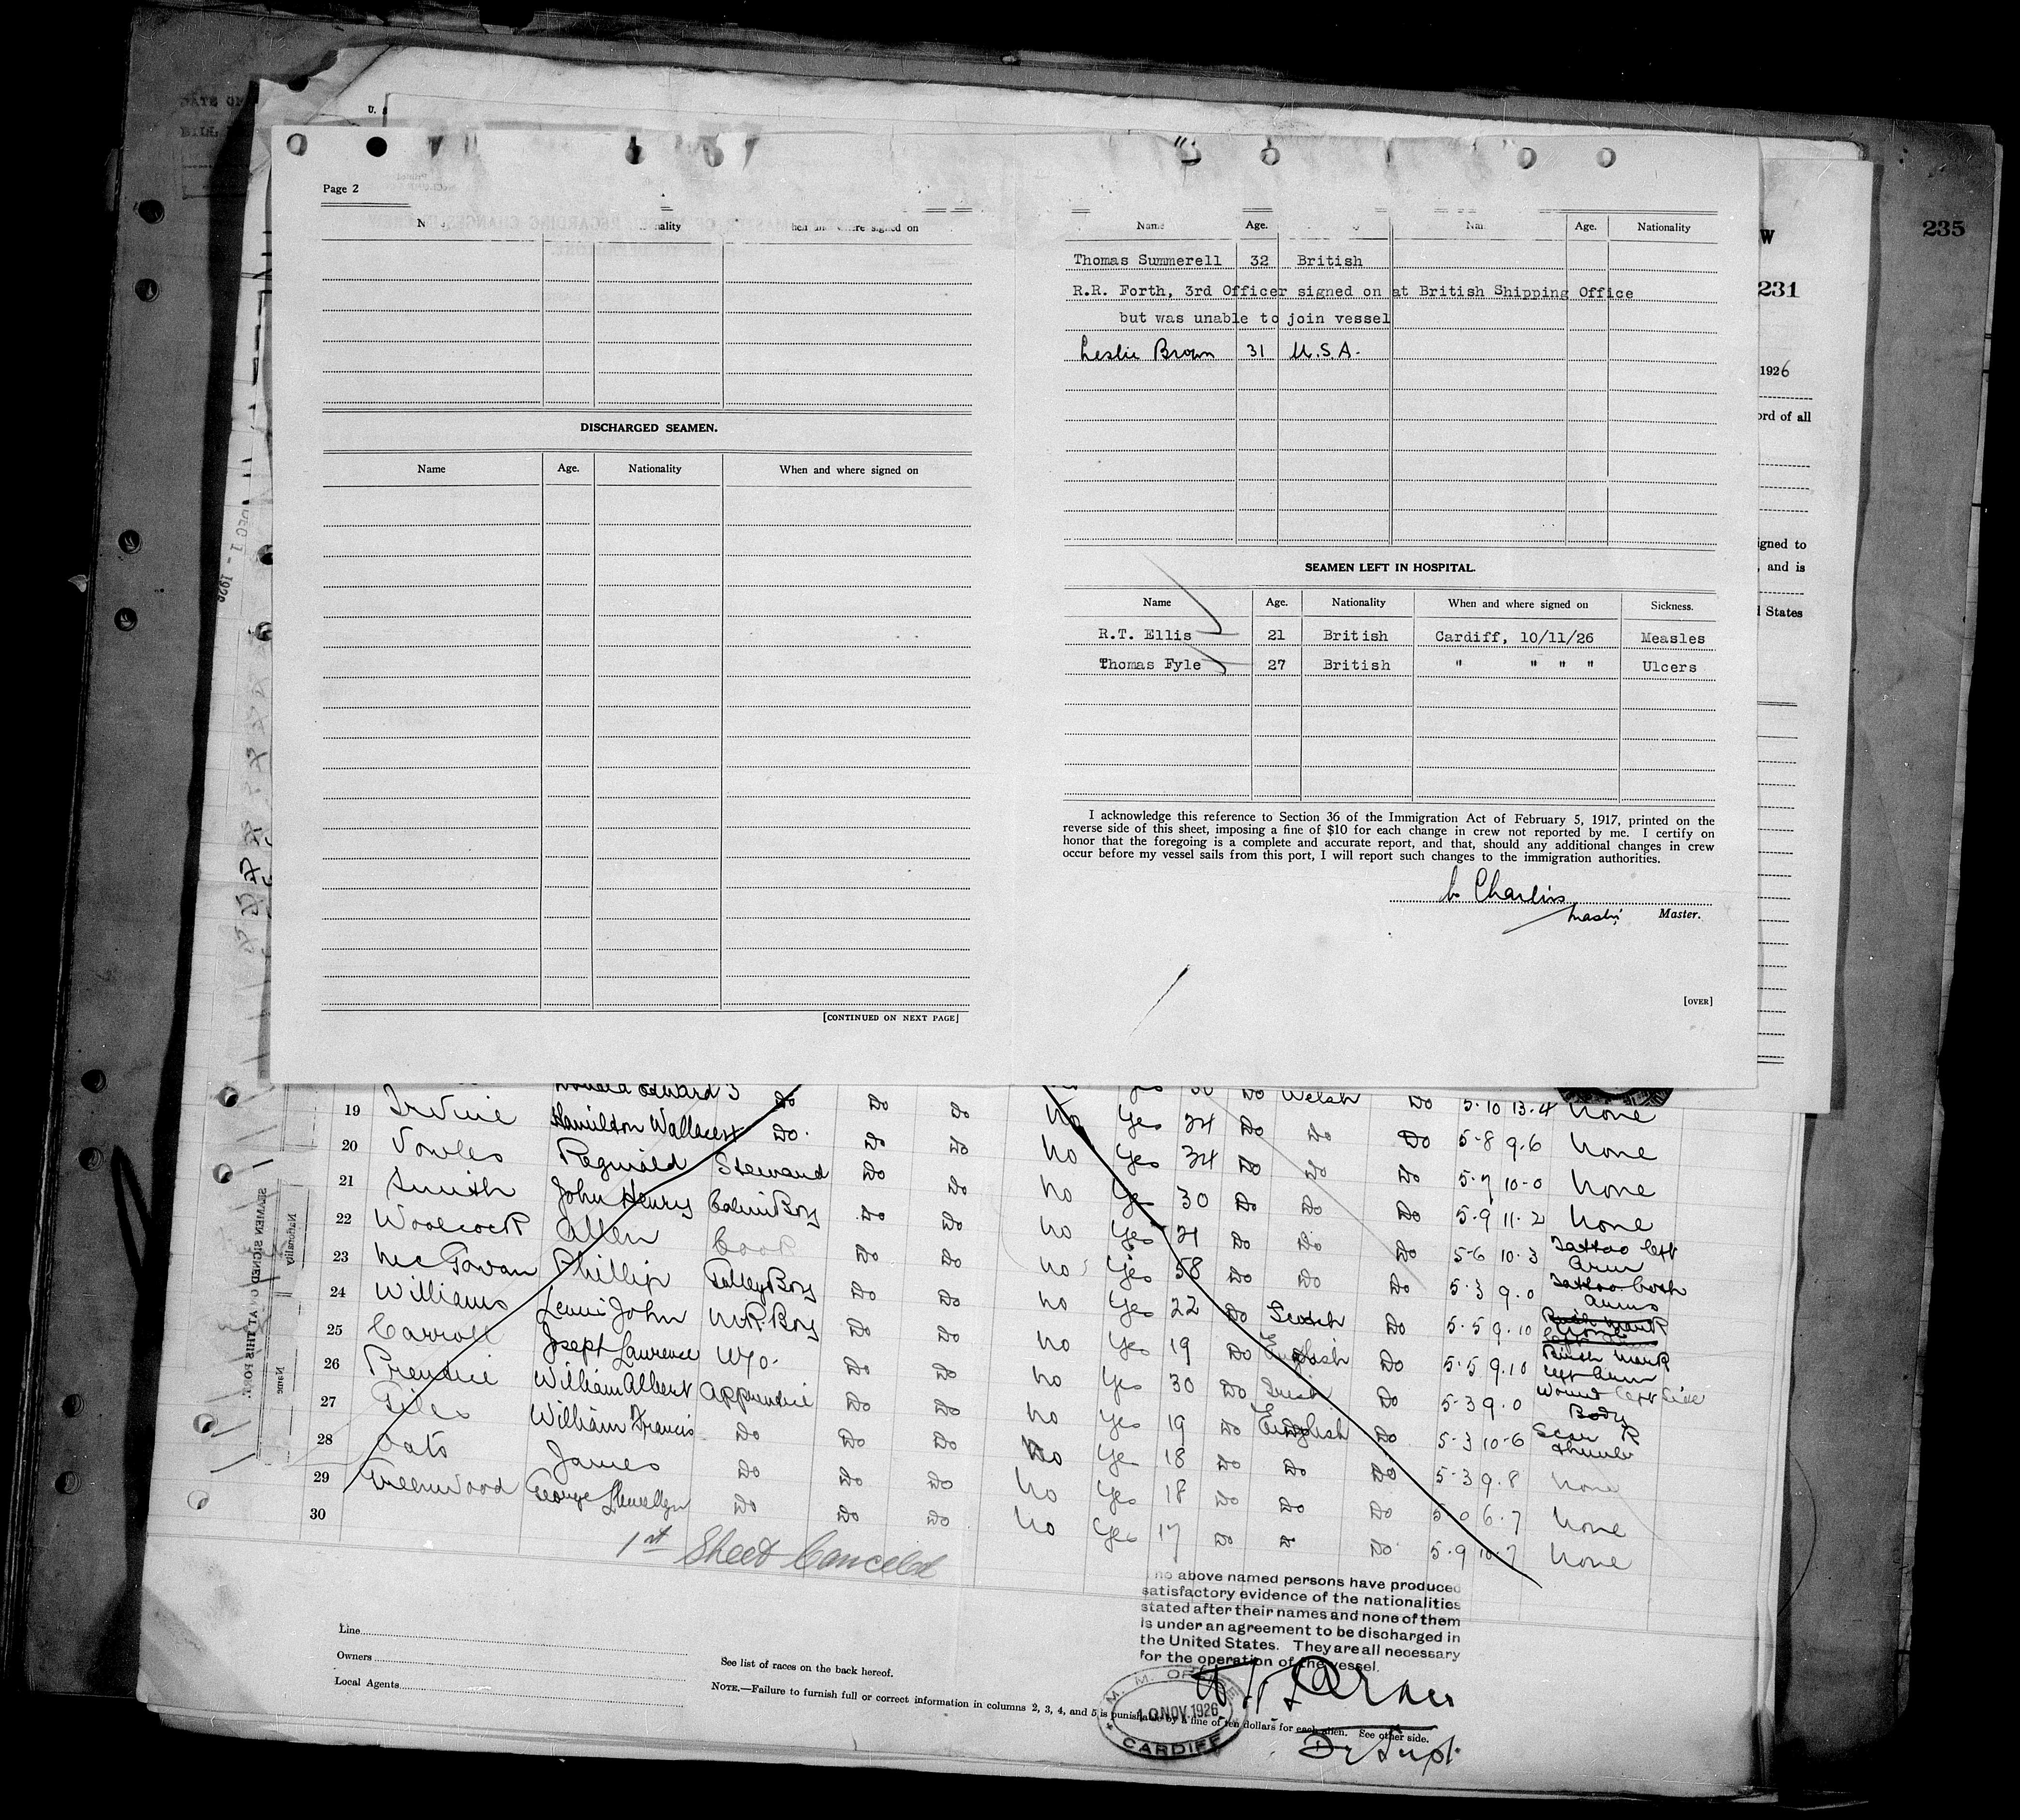 DATE OF
U. S
235
W
231
1926
ord of all
igned to
, and is
d States
Page 2
When and where signed on
DISCHARGED SEAMEN.
Name Age. Nationality When and where signed on
[CONTINUED ON NEXT PAGE]
Name Age. Age. Nationality
Thomas Summerell 32 British
R.R. Forth, 3rd Officer signed on at British Shipping Office
but was unable to join vessel
Leslie Brown 31 U.S.A.
SEAMEN LEFT IN HOSPITAL.
Name Age. Nationality When and where signed on Sickness.
R.T. Ellis 21 British Cardiff, 10/11/26 Measles
Thomas Fyle 27 British " " " " Ulcers
I acknowledge this reference to Section 36 of the Immigration Act of February 5, 1917, printed on the
reverse side of this sheet, imposing a fine of $10 for each change in crew not reported by me. I certify on
honor that the foregoing is a complete and accurate report, and that, should any additional changes in crew
occur before my vessel sails from this port, I will report such changes to the immigration authorities.
Master.
[OVER]
Yes 30 Do Welsh Do 5-10 13-4 None
19 Irvine Hamilton Wallace Do Do Do No Yes 24 Do Do Do 5-8 9-6 None
20 Vowles Reginald Steward Do Do No Yes 34 Do Do Do 5-7 10-0 None
21 Smith John Henry Cabin Boy Do Do No Yes 30 Do Do Do 5-9 11-2 None
22 Woolcock Allen Cook Do Do No Yes 21 Do Do Do 5-6 10-3 Tattoo left Arm
23 McGowan Phillip Galley Boy Do Do No Yes 58 Do Do Do 5-3 9-0 Tattoo both Arms
24 Williams Lewis John M.R. Boy Do Do No Yes 22 Do Scotch Do 5-5 9-10
25 Carroll Joseph Laurence W/o. Do Do No Yes 19 Do English Do 5-5 9-10 Birth Mark left arm
26 Prentice William Albert Apprentice Do Do No Yes 30 Do Irish Do 5-3 9-0 Wound left side Body
27 Giles William Francis Do Do Do No Yes 19 Do English Do 5-3 10-6 Scar R thumb
28 Oats James Do Do Do No Yes 18 Do Do Do 5-3 9-8 None
29 Greenwood George Llewellyn Do Do Do No Yes 18 Do Do Do 5-0 6-7 None
30 No Yes 17 Do Do Do 5-9 10-7 None
1st Sheet Canceled
no above named persons have produced
satisfactory evidence of the nationalities
stated after their names and none of them
is under an agreement to be discharged in
the United States. They are all necessary
for the operation of the vessel.
Line
Owners
Local Agents
See list of races on the back hereof.
NOTE.—Failure to furnish full or correct information in columns 2, 3, 4, and 5 is punishable by a fine of ten dollars for each alien. See other side.
M. M. OFFICE
10 NOV 1926
CARDIFF